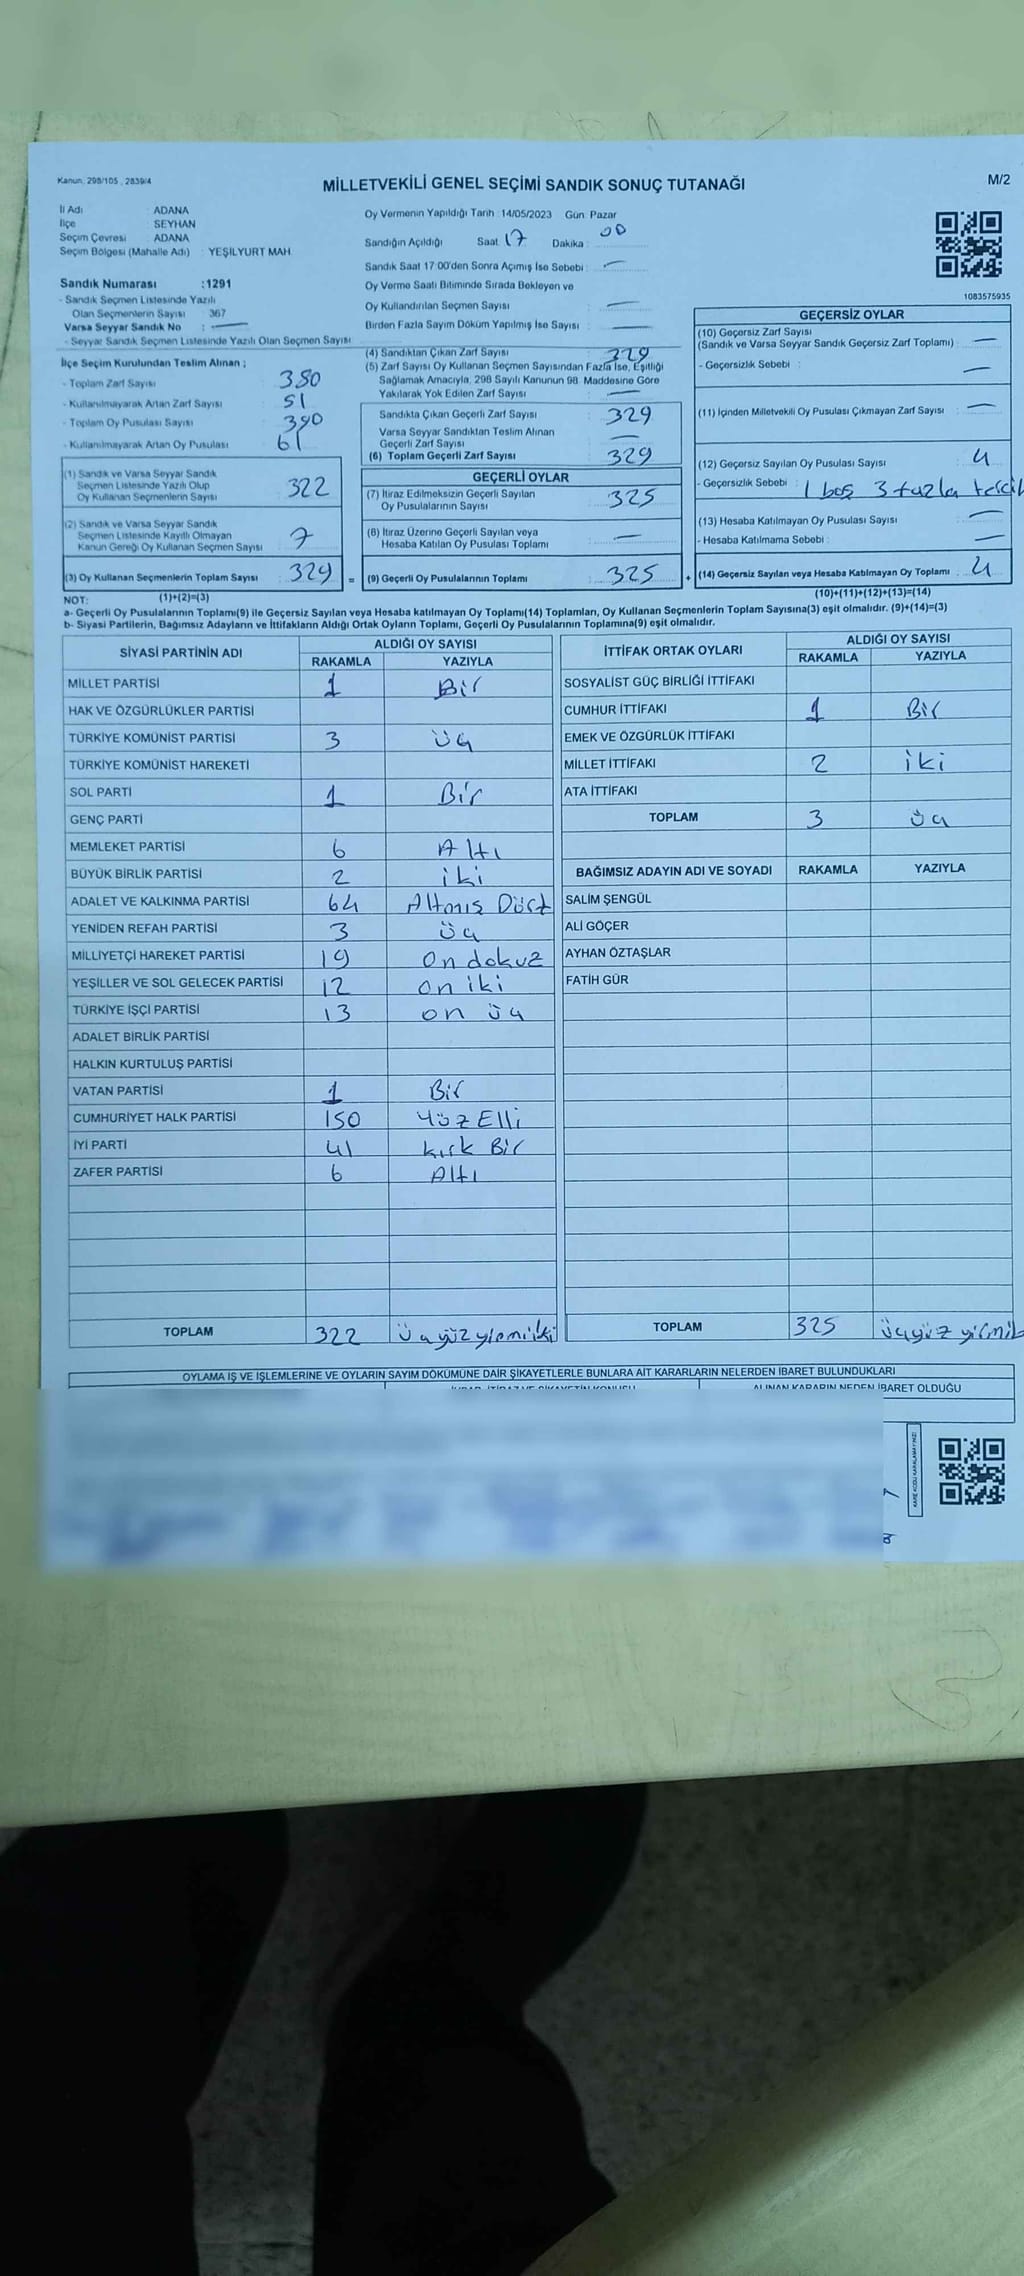 Kanun: 298/105 , 2839/4
MİLLETVEKİLİ GENEL SEÇİMİ SANDIK SONUÇ TUTANAĞI
M/2
İl Adı : ADANA
İlçe : SEYHAN
Seçim Çevresi : ADANA
Seçim Bölgesi (Mahalle Adı) : YEŞİLYURT MAH
Oy Vermenin Yapıldığı Tarih : 14/05/2023 Gün: Pazar
Sandığın Açıldığı Saat: 17 Dakika : 00
Sandık Saat 17:00'den Sonra Açımış İse Sebebi : —
Oy Verme Saati Bitiminde Sırada Bekleyen ve
Oy Kullandırılan Seçmen Sayısı : —
Birden Fazla Sayım Döküm Yapılmış İse Sayısı : —
1083575935
Sandık Numarası :1291
- Sandık Seçmen Listesinde Yazılı
Olan Seçmenlerin Sayısı : 367
Varsa Seyyar Sandık No : —
- Seyyar Sandık Seçmen Listesinde Yazılı Olan Seçmen Sayısı
İlçe Seçim Kurulundan Teslim Alınan ;
- Toplam Zarf Sayısı : 380
- Kullanılmayarak Artan Zarf Sayısı : 51
- Toplam Oy Pusulası Sayısı : 390
- Kullanılmayarak Artan Oy Pusulası : 61
(1) Sandık ve Varsa Seyyar Sandık
Seçmen Listesinde Yazılı Olup
Oy Kullanan Seçmenlerin Sayısı : 322
(2) Sandık ve Varsa Seyyar Sandık
Seçmen Listesinde Kayıtlı Olmayan
Kanun Gereği Oy Kullanan Seçmen Sayısı : 7
(3) Oy Kullanan Seçmenlerin Toplam Sayısı : 329 =
(4) Sandıktan Çıkan Zarf Sayısı : 329
(5) Zarf Sayısı Oy Kullanan Seçmen Sayısından Fazla İse, Eşitliği
Sağlamak Amacıyla, 298 Sayılı Kanunun 98. Maddesine Göre
Yakılarak Yok Edilen Zarf Sayısı : —
Sandıkta Çıkan Geçerli Zarf Sayısı : 329
Varsa Seyyar Sandıktan Teslim Alınan
Geçerli Zarf Sayısı : —
(6) Toplam Geçerli Zarf Sayısı : 329
GEÇERLİ OYLAR
(7) İtiraz Edilmeksizin Geçerli Sayılan
Oy Pusulalarının Sayısı : 325
(8) İtiraz Üzerine Geçerli Sayılan veya
Hesaba Katılan Oy Pusulası Toplamı : —
(9) Geçerli Oy Pusulalarının Toplamı : 325 +
GEÇERSİZ OYLAR
(10) Geçersiz Zarf Sayısı
(Sandık ve Varsa Seyyar Sandık Geçersiz Zarf Toplamı) : —
- Geçersizlik Sebebi : —
(11) İçinden Milletvekili Oy Pusulası Çıkmayan Zarf Sayısı : —
(12) Geçersiz Sayılan Oy Pusulası Sayısı : 4
- Geçersizlik Sebebi : 1 boş 3 fazla tercih
(13) Hesaba Katılmayan Oy Pusulası Sayısı : —
- Hesaba Katılmama Sebebi : —
(14) Geçersiz Sayılan veya Hesaba Katılmayan Oy Toplamı : 4
NOT: (1)+(2)=(3) (10)+(11)+(12)+(13)=(14)
a- Geçerli Oy Pusulalarının Toplamı(9) ile Geçersiz Sayılan veya Hesaba katılmayan Oy Toplamı(14) Toplamları, Oy Kullanan Seçmenlerin Toplam Sayısına(3) eşit olmalıdır. (9)+(14)=(3)
b- Siyasi Partilerin, Bağımsız Adayların ve İttifakların Aldığı Ortak Oyların Toplamı, Geçerli Oy Pusulalarının Toplamına(9) eşit olmalıdır.
SİYASİ PARTİNİN ADI ALDIĞI OY SAYISI
RAKAMLA YAZIYLA
MİLLET PARTİSİ 1 Bir
HAK VE ÖZGÜRLÜKLER PARTİSİ
TÜRKİYE KOMÜNİST PARTİSİ 3 üç
TÜRKİYE KOMÜNİST HAREKETİ
SOL PARTİ 1 Bir
GENÇ PARTİ
MEMLEKET PARTİSİ 6 Altı
BÜYÜK BİRLİK PARTİSİ 2 iki
ADALET VE KALKINMA PARTİSİ 64 Altmış Dört
YENİDEN REFAH PARTİSİ 3 üç
MİLLİYETÇİ HAREKET PARTİSİ 19 on dokuz
YEŞİLLER VE SOL GELECEK PARTİSİ 12 on iki
TÜRKİYE İŞÇİ PARTİSİ 13 on üç
ADALET BİRLİK PARTİSİ
HALKIN KURTULUŞ PARTİSİ
VATAN PARTİSİ 1 Bir
CUMHURİYET HALK PARTİSİ 150 Yüz Elli
İYİ PARTİ 41 kırk Bir
ZAFER PARTİSİ 6 Altı
TOPLAM 322
İTTİFAK ORTAK OYLARI ALDIĞI OY SAYISI
RAKAMLA YAZIYLA
SOSYALİST GÜÇ BİRLİĞİ İTTİFAKI
CUMHUR İTTİFAKI 1 Bir
EMEK VE ÖZGÜRLÜK İTTİFAKI
MİLLET İTTİFAKI 2 iki
ATA İTTİFAKI
TOPLAM 3 üç
BAĞIMSIZ ADAYIN ADI VE SOYADI RAKAMLA YAZIYLA
SALİM ŞENGÜL
ALİ GÖÇER
AYHAN ÖZTAŞLAR
FATİH GÜR
TOPLAM 325 üçyüz
OYLAMA İŞ VE İŞLEMLERİNE VE OYLARIN SAYIM DÖKÜMÜNE DAİR ŞİKAYETLERLE BUNLARA AİT KARARLARIN NELERDEN İBARET BULUNDUKLARI
ALINAN KARARIN NEDEN İBARET OLDUĞU
KARE KODU KARALAMAYINIZ!